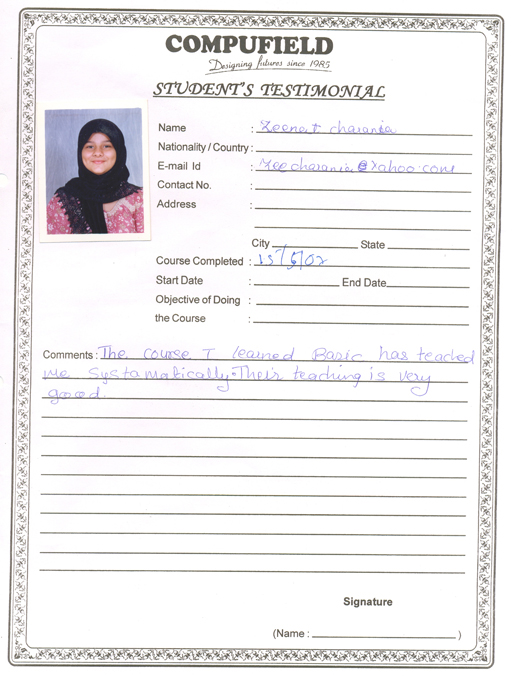 COMPUFIELD
Designing futures since 1985
STUDENT'S TESTIMONIAL
Name : Zeenat charania
Nationality / Country :
E-mail Id : Zeecharania@Yahoo.com
Contact No. :
Address :
City State
Course Completed : 13/5/02
Start Date : End Date
Objective of Doing :
the Course :
Comments : The course I learned Basic has teached
me Systamatically. Their teaching is very
good.
Signature
(Name : )